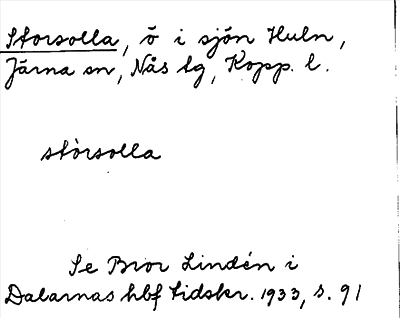 Storsolla, ö i sjön Huln,
Järna sn, Nås tg, Kopp. l.
stòrsolla
Se Bror Lindén i
Dalarnas hbf tidskr. 1933, s. 91